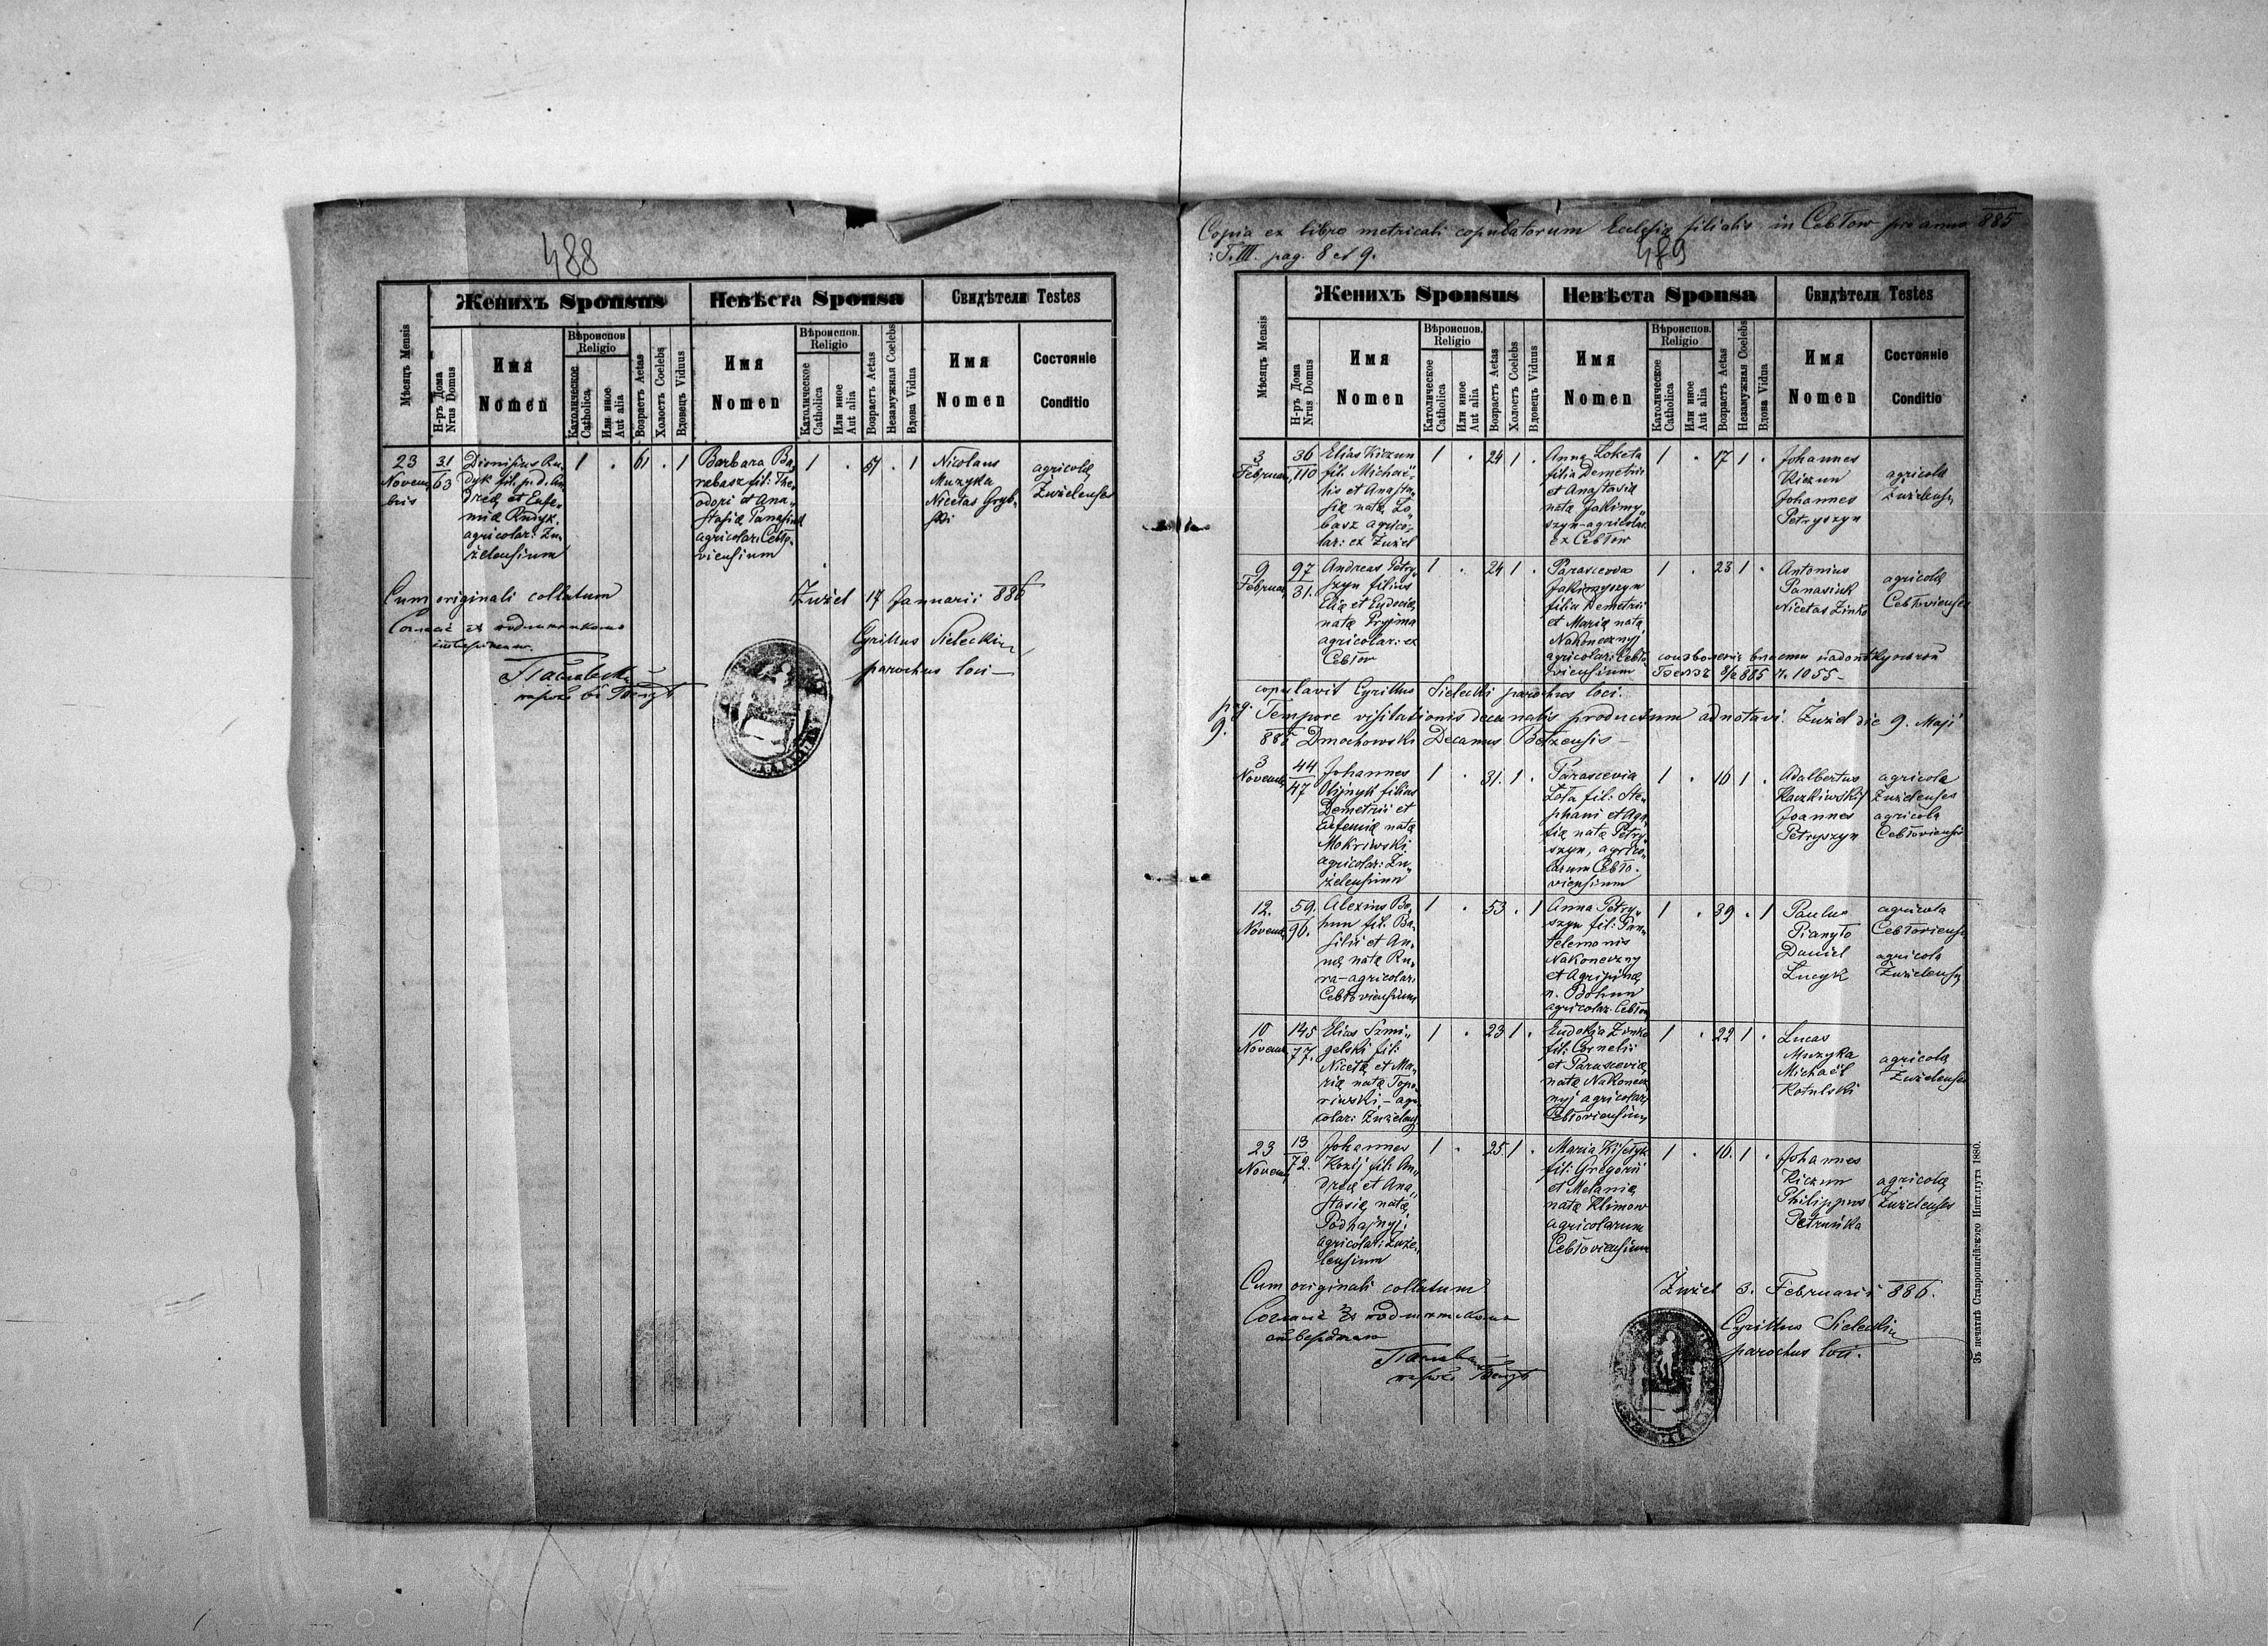 488
Женихъ Sponsus
Невѣста Sponsa
Свидѣтели Testes
Мѣсяцъ Mensis
Н-ръ Дома
Nrus Domus
Имя
Nomen
Вѣроиспов.
Religio
Католическое
Catholica
Или иное
Aut alia
Возрастъ Aetas
Холостъ Coelebs
Вдовецъ Viduus
Имя
Nomen
Вѣроиспов.
Religio
Католическое
Catholica
Или иное
Aut alia
Возрастъ Aetas
Незамужная Coelebs
Вдова Vidua
Имя
Nomen
Состояніе
Conditio
23
Novem
bris
31
63
Dionisius Ru
dyk fil. p. d. An
dreæ et Eufe
miæ Rudyk
agricolar: Żu
żelensium
1 . 61 . 1
Barbara Ba
rebasz fil: The
odori et Ana
stasiæ Panasiuk
agricolar: Cebło
viensium
1 . 57 . 1
Nicolaus
Muzyka
Nicetas Gryb
ski
agricolæ
Żużelenses
Cum originali collatum
Żużel 17 Januarii 886
Cyrillus Sielecki
parochus loci
Copia ex libro metricali copulatorum Ecclesiæ filialis in Cebłow pro anno 885
T. III. pag. 8 et 9.
489
Женихъ Sponsus
Невѣста Sponsa
Свидѣтели Testes
Мѣсяцъ Mensis
Н-ръ Дома
Nrus Domus
Имя
Nomen
Вѣроиспов.
Religio
Католическое
Catholica
Или иное
Aut alia
Возрастъ Aetas
Холостъ Coelebs
Вдовецъ Viduus
Имя
Nomen
Вѣроиспов.
Religio
Католическое
Catholica
Или иное
Aut alia
Возрастъ Aetas
Незамужная Coelebs
Вдова Vidua
Имя
Nomen
Состояніе
Conditio
3
Februar
36
110
Elias Kiczun
fil. Michaë
lis et Anasta
siæ natæ Ło
basz agrico
lar: ex Żużel
1 . 24 1 .
Anna Loketa
filia Demetrii
et Anastasiæ
natæ Jakimy
szyn agricolar:
ex Cebłow
1 . 17 1 .
Johannes
Kiczun
Johannes
Petryszyn
agricolæ
Żużelenses
9
Februar
97
31.
Andreas Petry
szyn filius
Eliæ et Eudociæ
natæ Pryjma
agricolar: ex
Cebłow
1 . 24 1 .
Parascevia
Jakimyszyn
filia Demetrii
et Mariæ natæ
Nakonecznyj
agricolar: Cebło
viensium
1 . 23 1 .
Antonius
Panasiuk
Nicetas Zinko
agricolæ
Cebłovienses
copulavit Cyrillus Sielecki parochus loci.
pag. 9.
Tempore visitationis decanalis productum adnotavi. Żużel die 9. Maji
885 Dmochowski Decanus Bełzensis
3
Novemb
44
47
Johannes
Olijnyk filius
Demetrii et
Eufemiæ natæ
Mokriwski
agricolar: Żu
żelensium
1 . 31. 1 .
Parascevia
Łoła fil: Ste
phani et Aga
fiæ natæ Petry
szyn, agrico
larum Cebło
viensium
1 . 16 1 .
Adalbertus
Kaczkiwskij
Joannes
Petryszyn
agricola
Żużelensis
agricola
Cebłoviensis
12.
Novemb
59.
96.
Alexius Bo
hun fil: Ba
silii et An
næ natæ Ku
ra agricolar:
Cebłoviensium
1 . 53 . 1
Anna Petry
szyn fil: Pan
telemonis
Nakoneczny
et Agripinæ
n. Bohun
agricolar: Cebłow
1 . 39 . 1
Paulus
Pianyło
Daniel
Łucyk
agricola
Cebłoviensis
agricola
Żużelensis
10
Novemb
145
77.
Elias Szmi
gelski fil:
Nicetæ et Ma
riæ natæ Topo
riwski agri
colar: Żużelens
1 . 23 1 .
Eudokja Zinko
fil: Cornelii
et Parasceviæ
natæ Nakonecz
nyj agricolar:
Cebłoviensium
1 . 22 1 .
Lucas
Muzyka
Michaël
Kotulski
agricolæ
Żużelenses
23
Novemb
13
72.
Johannes
Kozij fil: An
dreæ et Ana
stasiæ natæ
Podhajnyj
agricolar: Żuże
lensium
1 . 25 1 .
Maria Kisełyk
fil: Gregorii
et Melaniæ
natæ Klimow
agricolarum
Cebłoviensium
1 . 16. 1 .
Johannes
Kiczun
Philippus
Petruńka
agricolæ
Żużelenses
Cum originali collatum
Żużel 3. Februarii 886.
Cyrillus Sielecki
parochus loci.
Зъ печатнѣ Ставропигійского Института 1880.